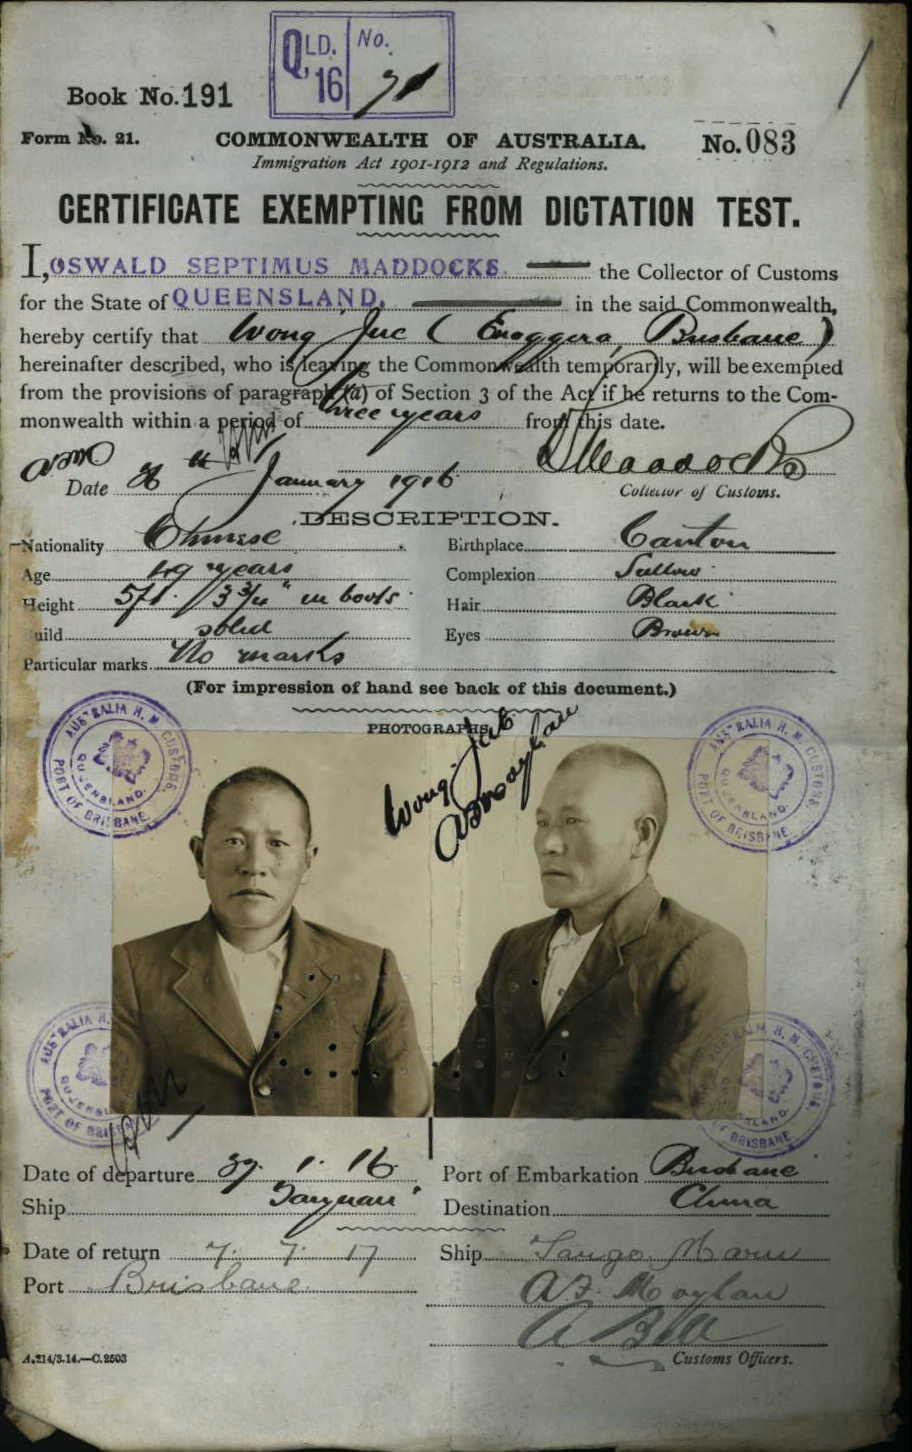 QLD. No.
16 71
Book No. 191
Form No. 21. COMMONWEALTH OF AUSTRALIA. No. 083
Immigration Act 1901-1912 and Regulations.
CERTIFICATE EXEMPTING FROM DICTATION TEST.
I, OSWALD SEPTIMUS MADDOCKS the Collector of Customs
for the State of QUEENSLAND. in the said Commonwealth,
hereby certify that Wong Jue (Enoggera, Brisbane)
hereinafter described, who is leaving the Commonwealth temporarily, will be exempted
from the provisions of paragraph (a) of Section 3 of the Act if he returns to the Com-
monwealth within a period of three years from this date.
Date January 1916 Collector of Customs.
DESCRIPTION.
Nationality Chinese Birthplace Canton
Age 49 years Complexion Sallow
Height 5ft. 3 3/4" in boots Hair Black
Build solid Eyes Brown
Particular marks No marks
(For impression of hand see back of this document.)
PHOTOGRAPHS.
Wong
AUSTRALIA H. M. CUSTOMS. QUEENSLAND. PORT OF BRISBANE
AUSTRALIA H. M. CUSTOMS. QUEENSLAND. PORT OF BRISBANE
AUSTRALIA H. M. CUSTOMS. QUEENSLAND. PORT OF BRISBANE
AUSTRALIA H. M. CUSTOMS. QUEENSLAND. PORT OF BRISBANE
Date of departure 1. 16 Port of Embarkation Brisbane
Ship "Taiyuan" Destination China
Date of return 7. 7. 17 Ship Tango Maru
Port Brisbane A. F. Moylan
A Bell
A.214/3.14.—C.2503 Customs Officers.